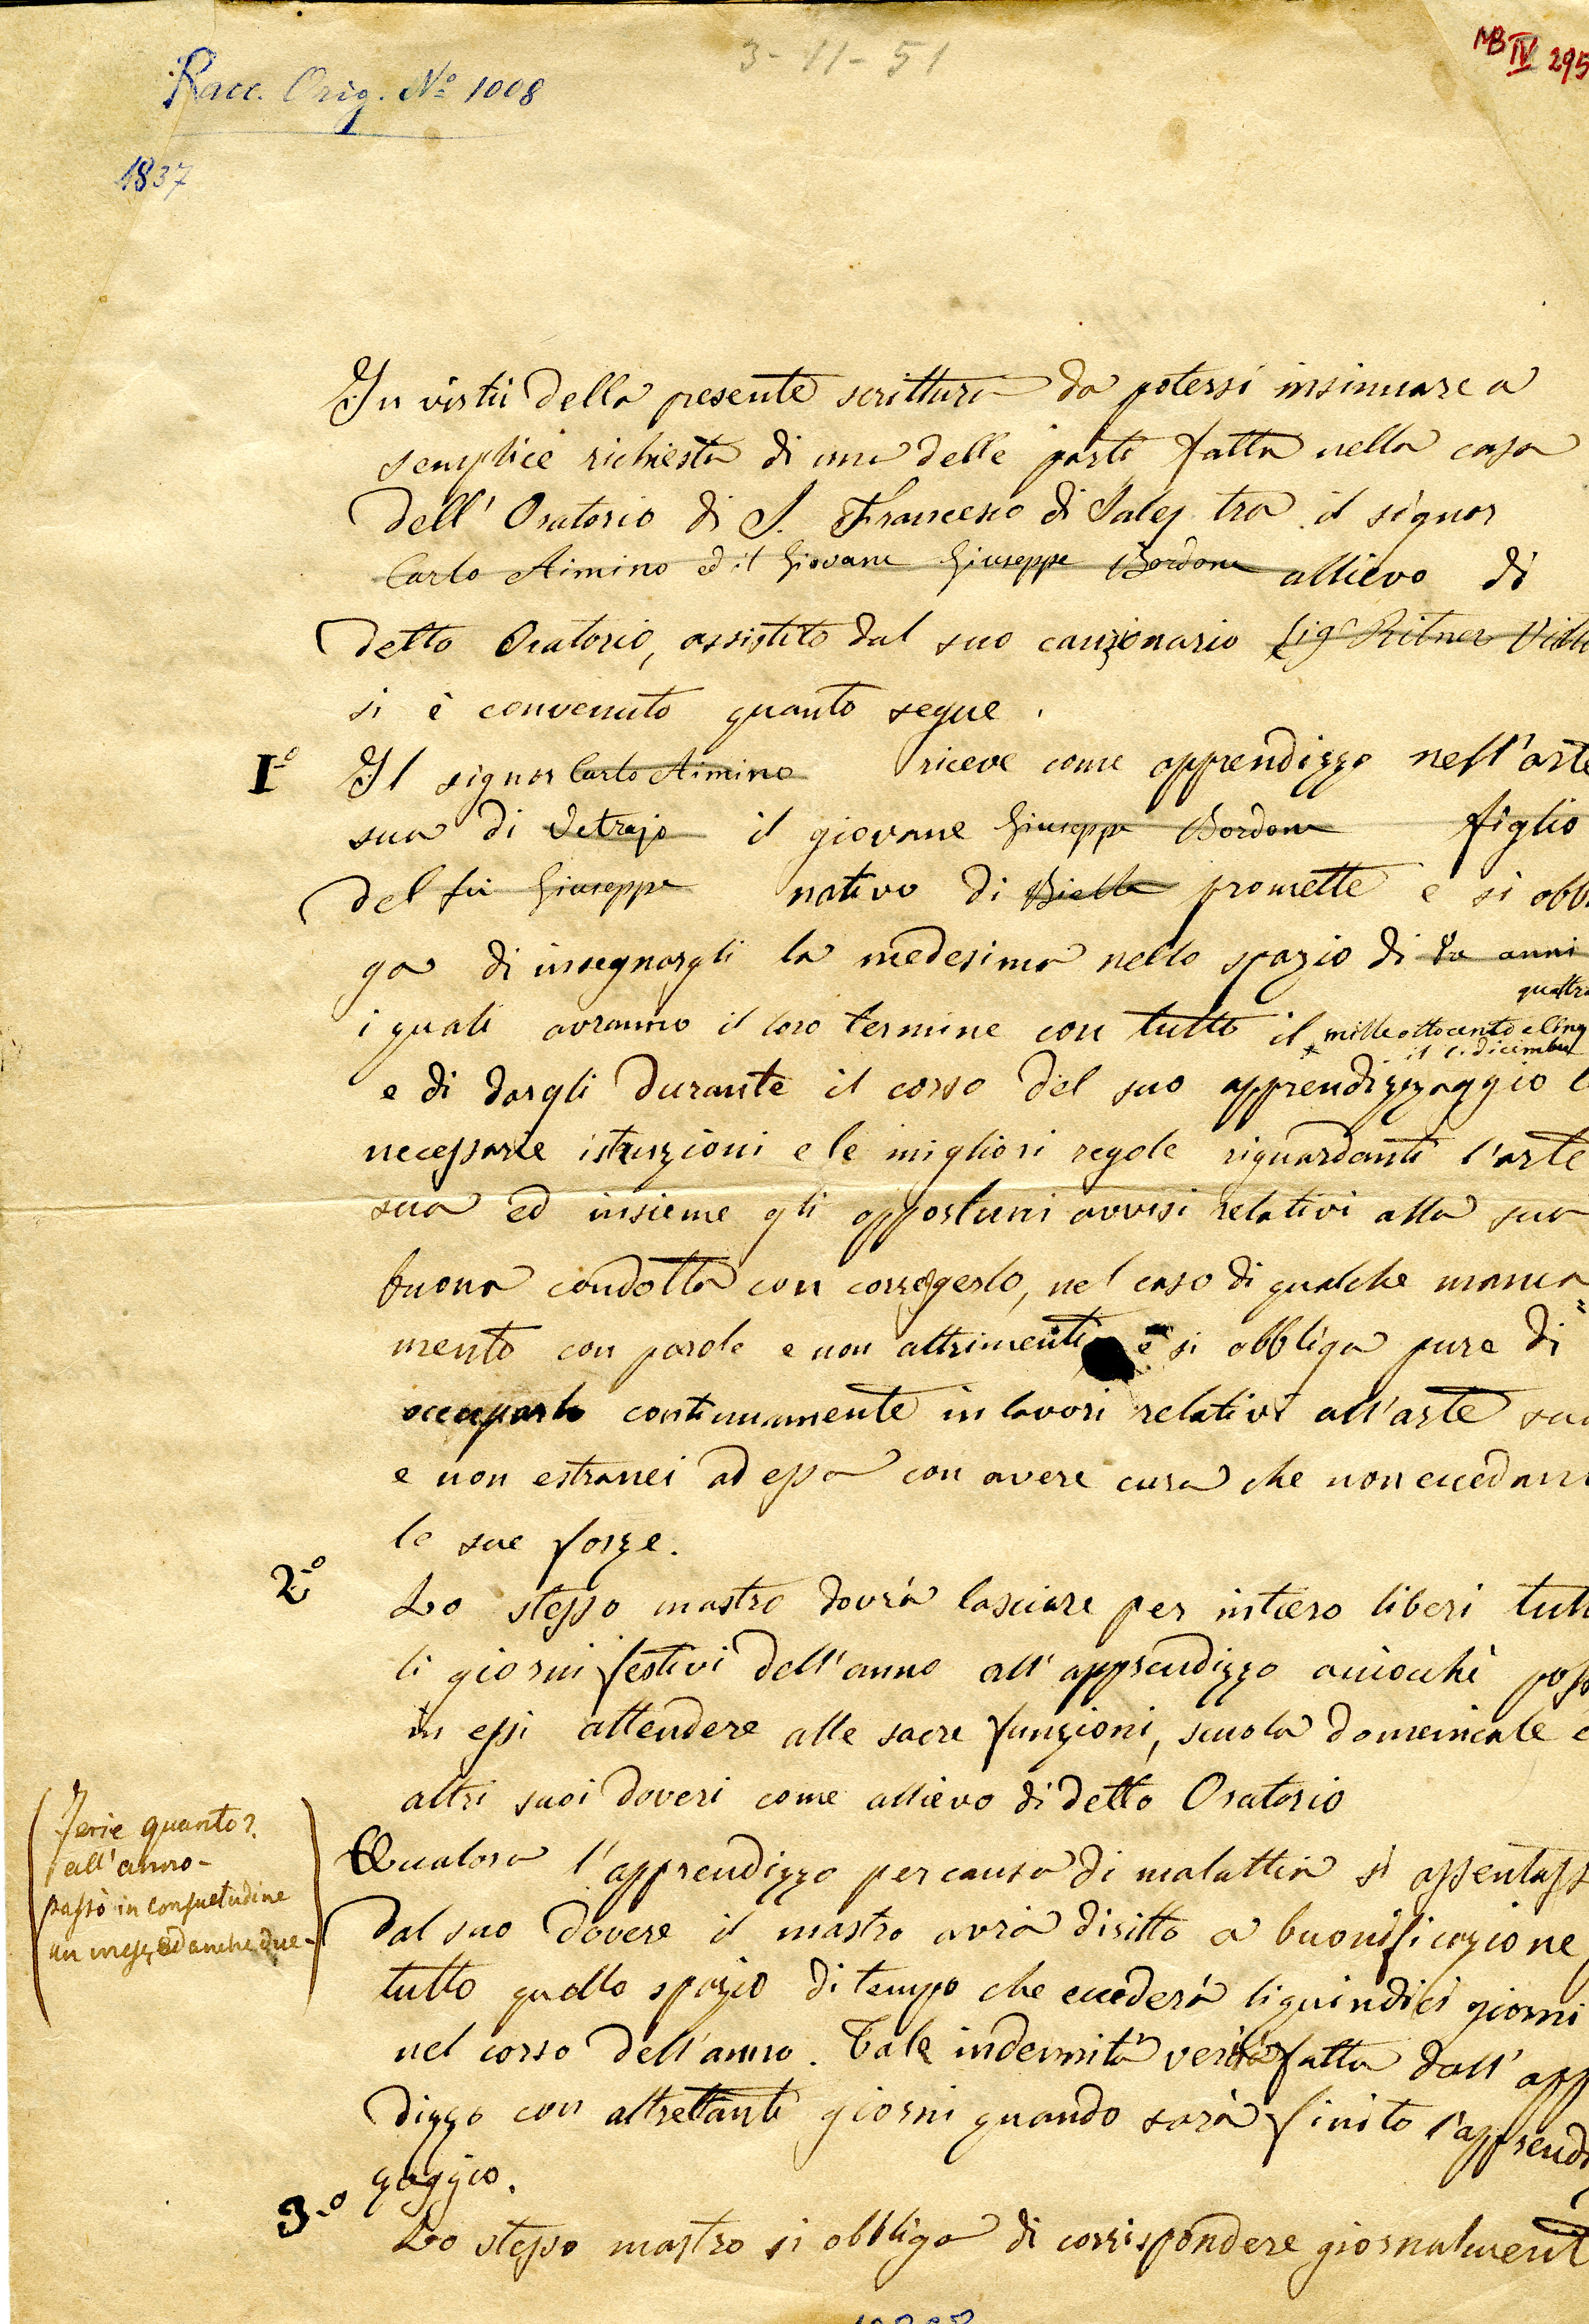 3-11-51
MB IV 295
Racc. Orig. Nº 1008
1837
In virtù della presente scrittura da potersi insinuare a
semplice richiesta di una delle parti fatta nella casa
dell' Oratorio di S. Francesco di Sales tra il signor
Carlo Aimino ed il Giovane Giuseppe Bordone allievo di
detto Oratorio, assistito dal suo cauzionario Sigr Ritner Vitto
si è convenuto quanto segue.
I.º Il signor Carlo Aimino riceve come apprendizzo nell'arte
sua di Vetrajo il giovane Giuseppe Bordone figlio
del fu Giuseppe nativo di Biella promette e si obb
ga di insegnargli la medesima nello spazio di tre anni
quattro
i quali avranno il loro termine con tutto il mille ottocento e Cinq
il 1. dicembre
e di dargli durante il corso del suo apprendizzaggio l
necessarie istruzioni e le migliori regole riguardanti l'arte
sua ed insieme gli opportuni avvisi relativi alla sua
buona condotta con correggerlo, nel caso di qualche manca=
mento con parole e non altrimenti e si obbliga pure di
occuparlo continuamente in lavori relativi all'arte sua
e non estranei ad essa con avere cura che non eccedano
le sue forze.
2.º Lo stesso mastro dovrà lasciare per intiero liberi tutt
li giorni festivi dell'anno all'apprendizzo acciocchè possa
in essi attendere alle sacre funzioni, scuola domenicale e
altri suoi doveri come allievo di detto Oratorio
Qualora l'apprendizzo per causa di malattia si assentass
dal suo dovere il mastro avrà diritto a buonificazione
tutto quello spazio di tempo che eccederà li quindici giorni
nel corso dell'anno. Tale indennità verrà fatta dall'app
dizzo con altrettanti giorni quando sarà finito l'apprendi
zaggio.
3.º Lo stesso mastro si obbliga di corrispondere giornalment
Ferie quanto?
all'anno-
passò in consuetudine
un mese, ed anche due-